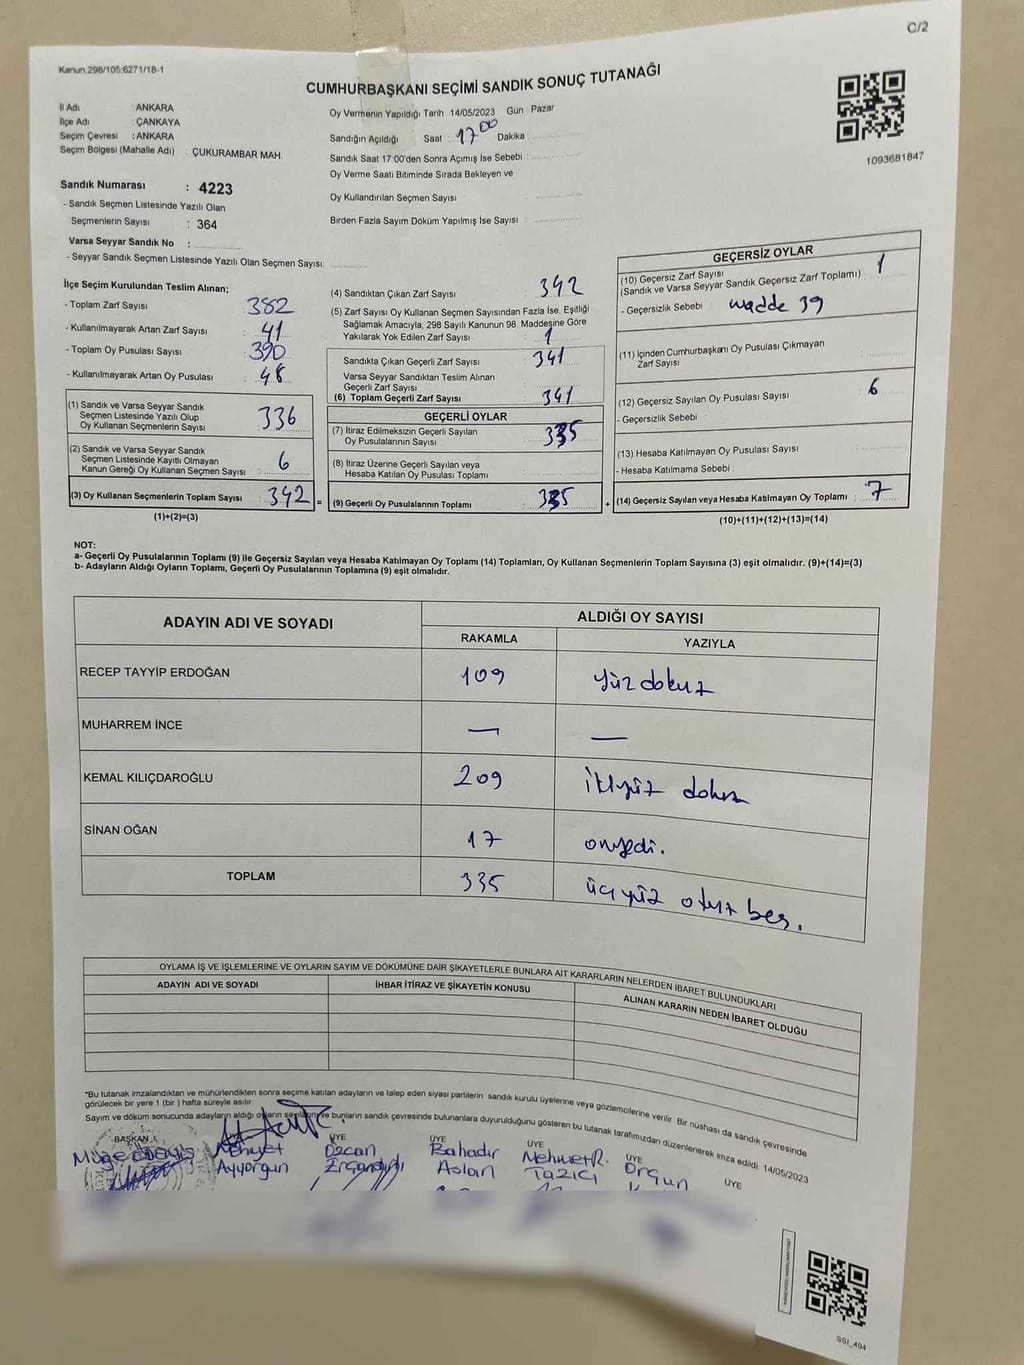 C/2
Kanun.298/105;6271/18-1
CUMHURBAŞKANI SEÇİMİ SANDIK SONUÇ TUTANAĞI
İl Adı : ANKARA
İlçe Adı : ÇANKAYA
Seçim Çevresi : ANKARA
Seçim Bölgesi (Mahalle Adı) : ÇUKURAMBAR MAH.
Sandık Numarası : 4223
- Sandık Seçmen Listesinde Yazılı Olan
Seçmenlerin Sayısı : 364
Varsa Seyyar Sandık No :
- Seyyar Sandık Seçmen Listesinde Yazılı Olan Seçmen Sayısı:
Oy Vermenin Yapıldığı Tarih 14/05/2023 Gün : Pazar
Sandığın Açıldığı Saat : 17 00 Dakika :
Sandık Saat 17:00'den Sonra Açımış İse Sebebi :
Oy Verme Saati Bitiminde Sırada Bekleyen ve
Oy Kullandırılan Seçmen Sayısı :
Birden Fazla Sayım Döküm Yapılmış İse Sayısı :
1093681847
İlçe Seçim Kurulundan Teslim Alınan;
- Toplam Zarf Sayısı : 382
- Kullanılmayarak Artan Zarf Sayısı : 41
- Toplam Oy Pusulası Sayısı : 390
- Kullanılmayarak Artan Oy Pusulası : 48
(1) Sandık ve Varsa Seyyar Sandık
Seçmen Listesinde Yazılı Olup
Oy Kullanan Seçmenlerin Sayısı : 336
(2) Sandık ve Varsa Seyyar Sandık
Seçmen Listesinde Kayıtlı Olmayan
Kanun Gereği Oy Kullanan Seçmen Sayısı : 6
(3) Oy Kullanan Seçmenlerin Toplam Sayısı : 342 =
(1)+(2)=(3)
(4) Sandıktan Çıkan Zarf Sayısı : 342
(5) Zarf Sayısı Oy Kullanan Seçmen Sayısından Fazla İse, Eşitliği
Sağlamak Amacıyla, 298 Sayılı Kanunun 98. Maddesine Göre
Yakılarak Yok Edilen Zarf Sayısı : 1
Sandıkta Çıkan Geçerli Zarf Sayısı : 341
Varsa Seyyar Sandıktan Teslim Alınan
Geçerli Zarf Sayısı :
(6) Toplam Geçerli Zarf Sayısı : 341
GEÇERLİ OYLAR
(7) İtiraz Edilmeksizin Geçerli Sayılan
Oy Pusulalarının Sayısı : 335
(8) İtiraz Üzerine Geçerli Sayılan veya
Hesaba Katılan Oy Pusulası Toplamı :
(9) Geçerli Oy Pusulalarının Toplamı : 335 +
GEÇERSİZ OYLAR
(10) Geçersiz Zarf Sayısı
(Sandık ve Varsa Seyyar Sandık Geçersiz Zarf Toplamı) : 1
- Geçersizlik Sebebi : madde 39
(11) İçinden Cumhurbaşkanı Oy Pusulası Çıkmayan
Zarf Sayısı :
(12) Geçersiz Sayılan Oy Pusulası Sayısı : 6
- Geçersizlik Sebebi :
(13) Hesaba Katılmayan Oy Pusulası Sayısı :
- Hesaba Katılmama Sebebi :
(14) Geçersiz Sayılan veya Hesaba Katılmayan Oy Toplamı : 7
(10)+(11)+(12)+(13)=(14)
NOT:
a- Geçerli Oy Pusulalarının Toplamı (9) ile Geçersiz Sayılan veya Hesaba Katılmayan Oy Toplamı (14) Toplamları, Oy Kullanan Seçmenlerin Toplam Sayısına (3) eşit olmalıdır. (9)+(14)=(3)
b- Adayların Aldığı Oyların Toplamı, Geçerli Oy Pusulalarının Toplamına (9) eşit olmalıdır.
ADAYIN ADI VE SOYADI ALDIĞI OY SAYISI
RAKAMLA YAZIYLA
RECEP TAYYİP ERDOĞAN 109 yüz dokuz
MUHARREM İNCE — —
KEMAL KILIÇDAROĞLU 209 ikiyüz dokuz
SİNAN OĞAN 17 onyedi.
TOPLAM 335 üçyüz otuz beş.
OYLAMA İŞ VE İŞLEMLERİNE VE OYLARIN SAYIM VE DÖKÜMÜNE DAİR ŞİKAYETLERLE BUNLARA AİT KARARLARIN NELERDEN İBARET BULUNDUKLARI
ADAYIN ADI VE SOYADI İHBAR İTİRAZ VE ŞİKAYETİN KONUSU ALINAN KARARIN NEDEN İBARET OLDUĞU
*Bu tutanak imzalandıktan ve mühürlendikten sonra seçime katılan adayların ve talep eden siyasi partilerin sandık kurulu üyelerine veya gözlemcilerine verilir. Bir nüshası da sandık çevresinde
görülecek bir yere 1 (bir ) hafta süreyle asılır.
Sayım ve döküm sonucunda adayların aldığı oyların sayıların ve bunların sandık çevresinde bulunanlara duyurulduğunu gösteren bu tutanak tarafımızdan düzenlenerek imza edildi. 14/05/2023
BAŞKAN ÜYE ÜYE ÜYE ÜYE ÜYE
Müge Özcan Bahadır Mehmet R. Orgun
Ayyorgun Aslan Tazıcı
SSI_404